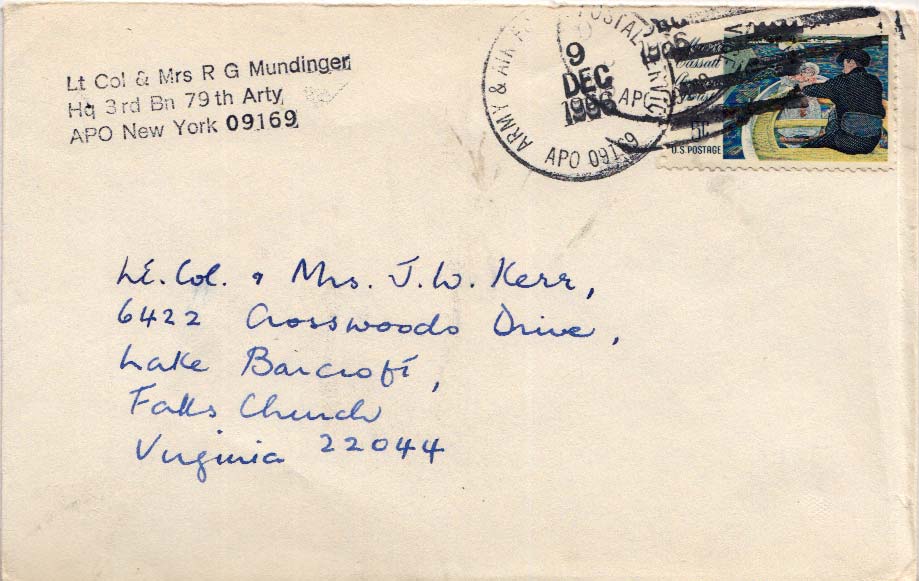 Lt Col & Mrs R G Mundinger
Hq 3rd Bn 79th Arty
APO New York 09169
ARMY & AIR
POSTAL SERVICE
9
DEC
1966
APO
APO 09169
1966
Mary
Cassatt
American
5c
U.S. POSTAGE
Lt. Col. & Mrs. J. W. Kerr,
6422 Crosswoods Drive,
Lake Barcroft,
Falls Church
Virginia 22044